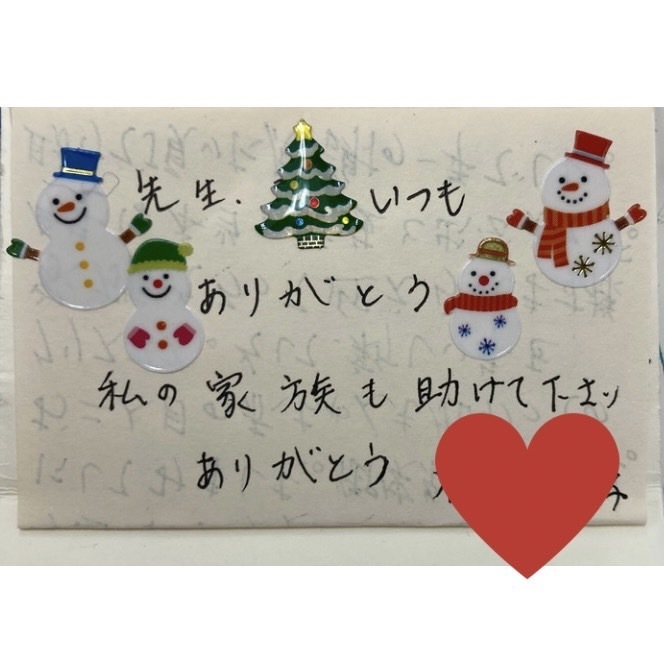 先生、いつも
ありがとう
私の家族も助けて下さり
ありがとう